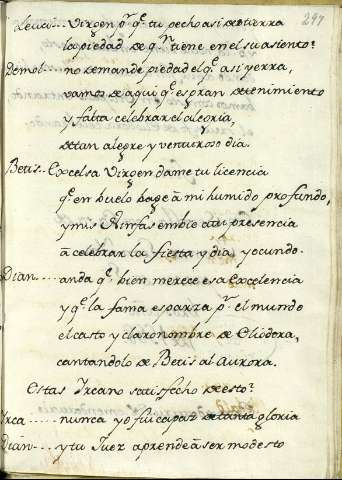 297
Leuci... Virgen pr. q.e tu pecho asi destierra
la piedad de q.n tiene en el su asiento?
Demol... no demande piedad el q.e asi yerra,
vamos de aqui q.e es gran detenimiento
y falta celebrar el alegria,
de tan alegre y venturoso dia.
Betis.. Excelsa Virgen dame tu licencia
q.e en buelo baxe à mi humido profundo,
y mis Ninfas embie à tu presencia
à celebrar la fiesta y dia, yocundo.
Dian... anda q.e bien merece esa Excelencia
y q.e la fama esparza pr. el mundo
el casto y claro nombre de Eliodora,
cantandolo de Betis al Aurora.
Estas Ircano satisfecho de esto?
Irca.... nunca yo fui capaz de tanta gloria
Dian.... y tu Juez aprende à ser modesto